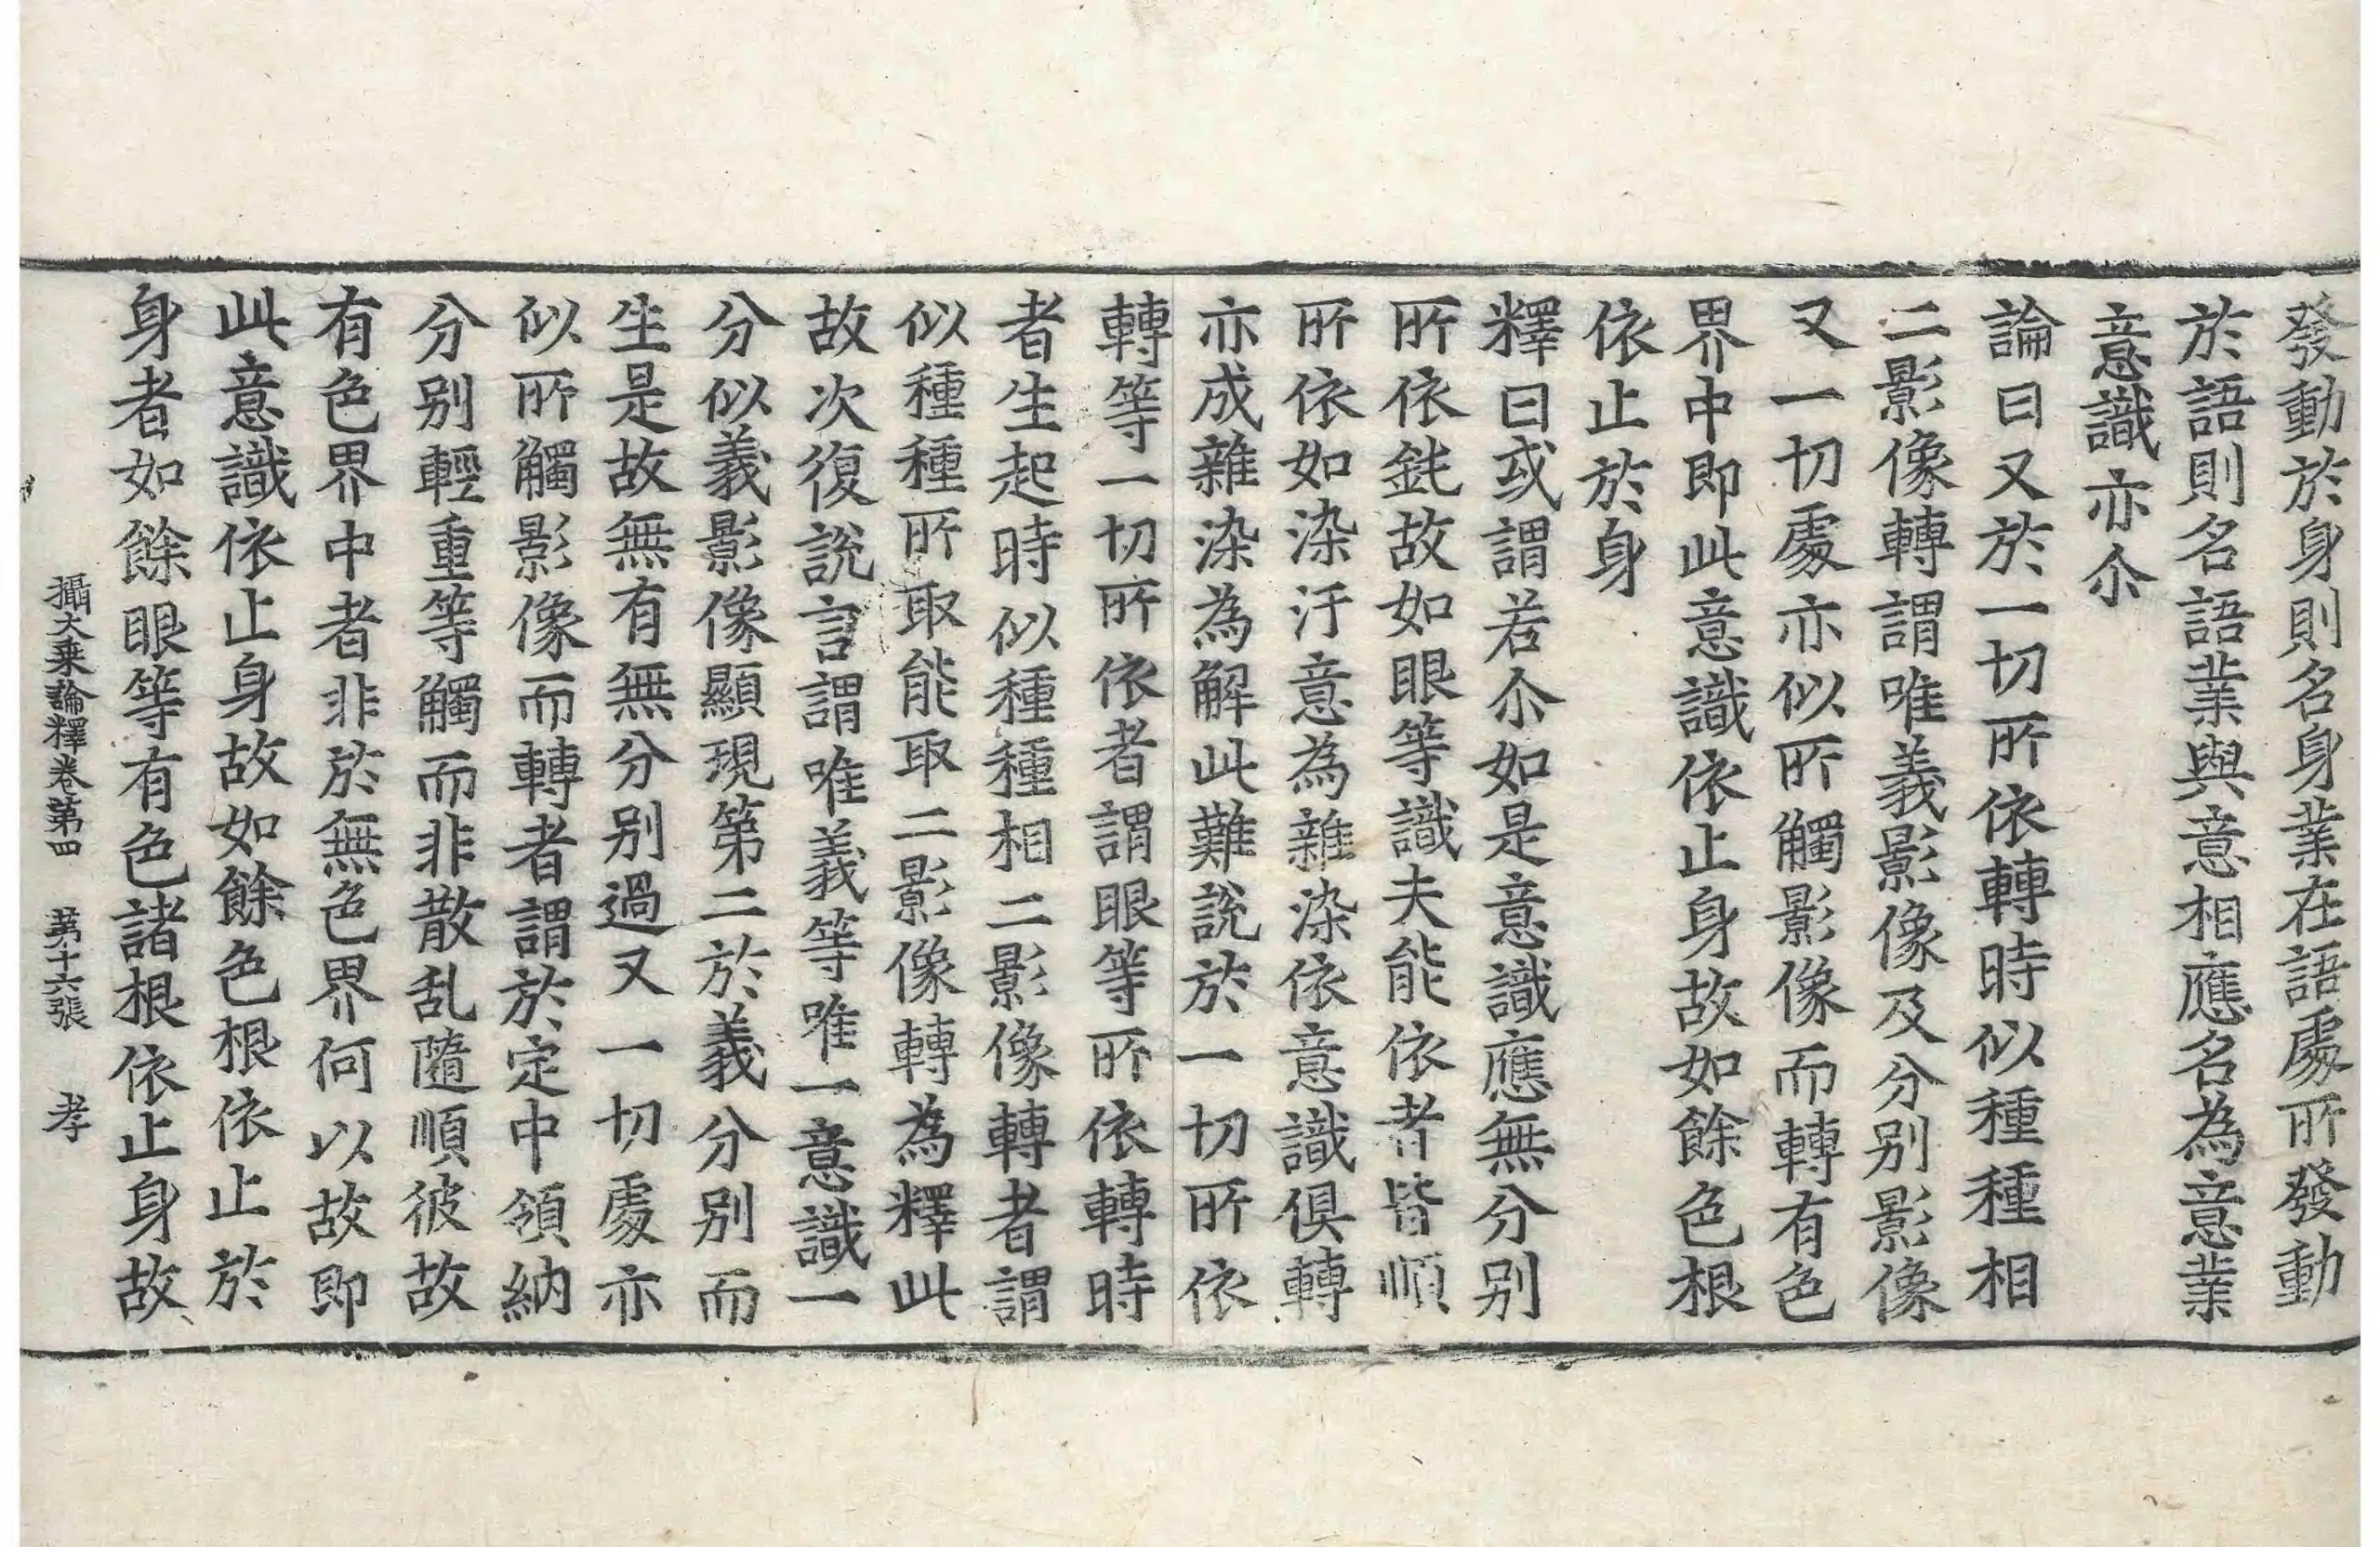 發動於身則名身業在語處所發動
於語則名語業與意相應名為意業
意識亦尒
論曰又於一切所依轉時似種種相
二影像轉謂唯義影像及分別影像
又一切處亦似所觸影像而轉有色
界中即此意識依止身故如餘色根
依止於身
釋曰或謂若尒如是意識應無分別
所依鈍故如眼等識夫能依者皆順
所依如染汙意為雜染依意識俱轉
亦成雜染為解此難說於一切所依
轉等一切所依者謂眼等所依轉時
者生起時似種種相二影像轉者謂
似種種所取能取二影像轉為釋此
故次復說言謂唯義等唯一意識一
分似義影像顯現第二於義分別而
生是故無有無分別過又一切處亦
似所觸影像而轉者謂於定中領納
分別輕重等觸而非散乱隨順彼故
有色界中者非於無色界何以故即
此意識依止身故如餘色根依止於
身者如餘眼等有色諸根依止身故
攝大乗論釋卷第四 第十六張 孝